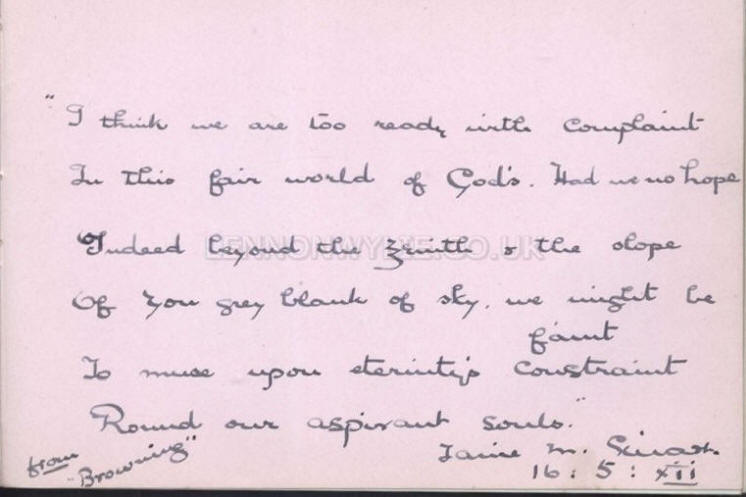 "I think we are too ready with complaint
In this fair world of God's. Had we no hope
Indeed beyond the zenith & the slope
Of yon grey blank of sky, we might be
faint
To muse upon eternity's constraint
Round our aspirant souls."
from
"Browning"
M.
16 : 5 : xii
LENNONWYLIE.CO.UK